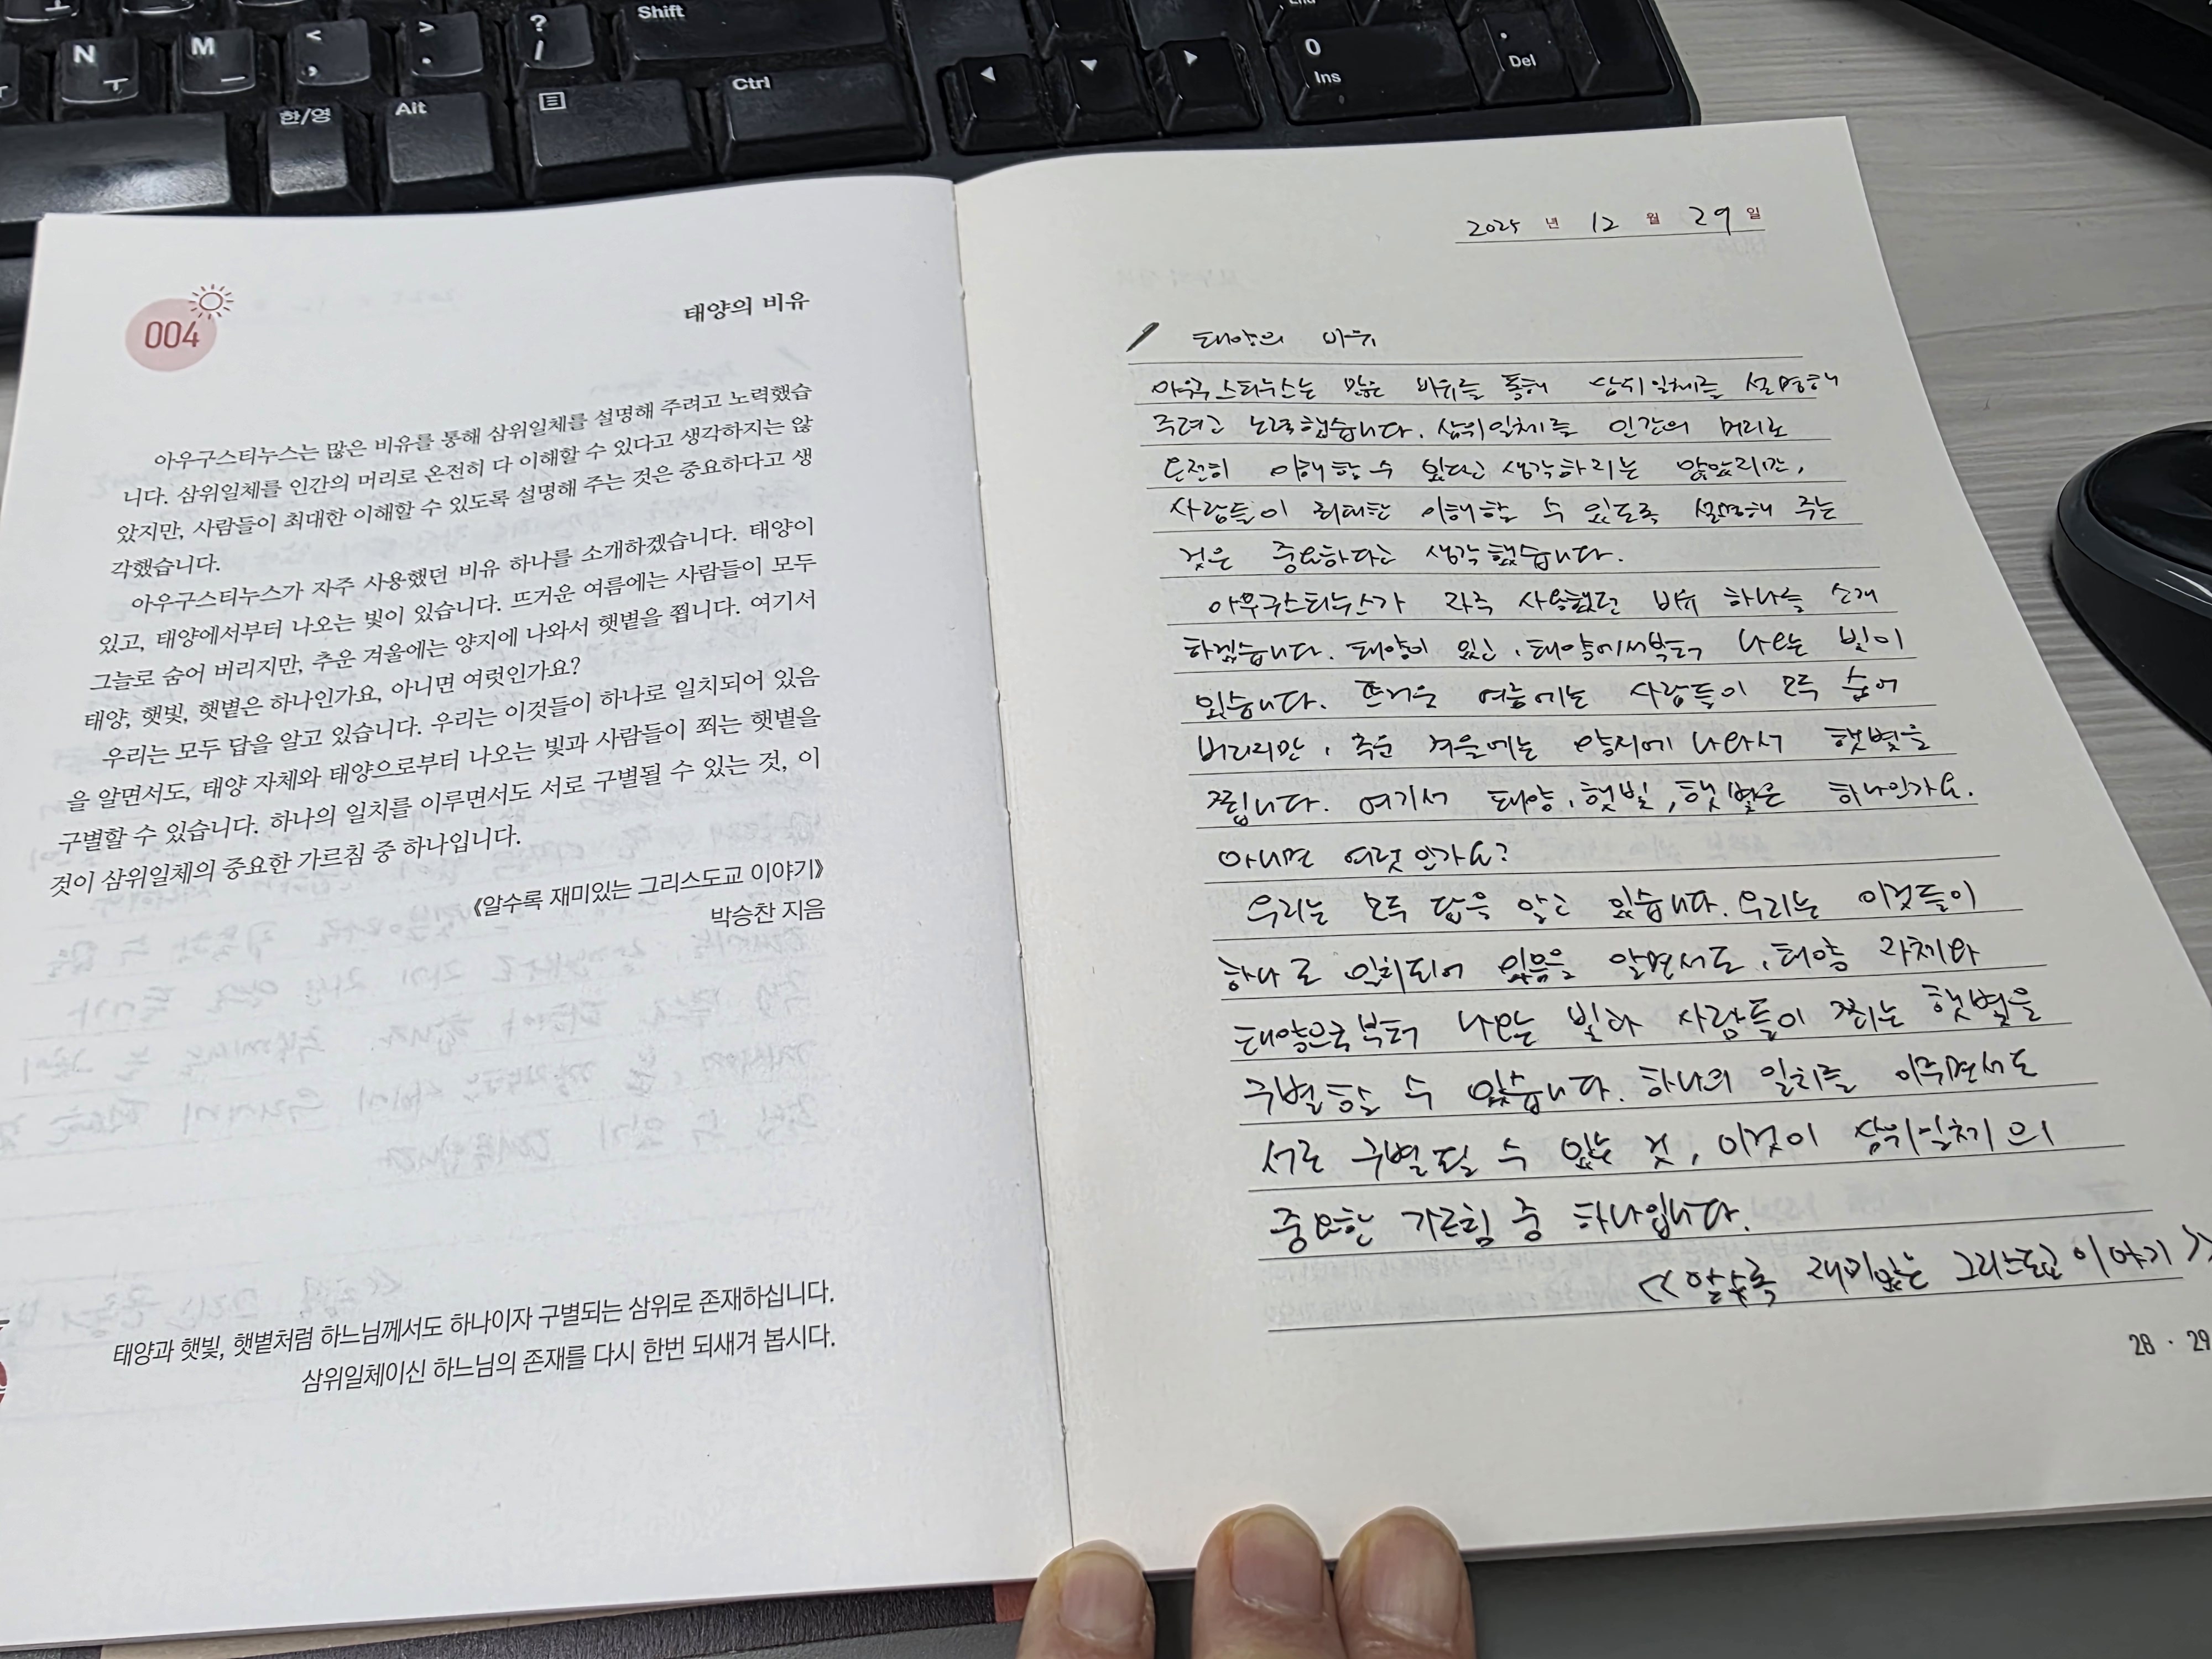 N
ㅜ
M
ㅡ
<
,
>
.
?
/
Shift
한/영
Alt
Ctrl
0
Ins
.
Del
004
태양의 비유
아우구스티누스는 많은 비유를 통해 삼위일체를 설명해 주려고 노력했습
니다. 삼위일체를 인간의 머리로 온전히 다 이해할 수 있다고 생각하지는 않
았지만, 사람들이 최대한 이해할 수 있도록 설명해 주는 것은 중요하다고 생
각했습니다.
아우구스티누스가 자주 사용했던 비유 하나를 소개하겠습니다. 태양이
있고, 태양에서부터 나오는 빛이 있습니다. 뜨거운 여름에는 사람들이 모두
그늘로 숨어 버리지만, 추운 겨울에는 양지에 나와서 햇볕을 쬡니다. 여기서
태양, 햇빛, 햇볕은 하나인가요, 아니면 여럿인가요?
우리는 모두 답을 알고 있습니다. 우리는 이것들이 하나로 일치되어 있음
을 알면서도, 태양 자체와 태양으로부터 나오는 빛과 사람들이 쬐는 햇볕을
구별할 수 있습니다. 하나의 일치를 이루면서도 서로 구별될 수 있는 것, 이
것이 삼위일체의 중요한 가르침 중 하나입니다.
《알수록 재미있는 그리스도교 이야기》
박승찬 지음
태양과 햇빛, 햇볕처럼 하느님께서도 하나이자 구별되는 삼위로 존재하십니다.
삼위일체이신 하느님의 존재를 다시 한번 되새겨 봅시다.
2025 년 12 월 29 일
태양의 비유
아우구스티누스는 많은 비유를 통해 삼위일체를 설명해
주려고 노력했습니다. 삼위일체를 인간의 머리로
온전히 이해할 수 있다고 생각하지는 않았지만,
사람들이 최대한 이해할 수 있도록 설명해 주는
것은 중요하다고 생각했습니다.
아우구스티누스가 자주 사용했던 비유 하나를 소개
하겠습니다. 태양이 있고, 태양에서부터 나오는 빛이
있습니다. 뜨거운 여름에는 사람들이 모두 숨어
버리지만, 추운 겨울에는 양지에 나와서 햇볕을
쬡니다. 여기서 태양, 햇빛, 햇볕은 하나인가요.
아니면 여럿인가요?
우리는 모두 답을 알고 있습니다. 우리는 이것들이
하나로 일치되어 있음을 알면서도, 태양 자체와
태양으로부터 나오는 빛과 사람들이 쬐는 햇볕을
구별할 수 있습니다. 하나의 일치를 이루면서도
서로 구별될 수 있는 것, 이것이 삼위일체의
중요한 가르침 중 하나입니다.
<<알수록 재미있는 그리스도교 이야기>>
28 · 29